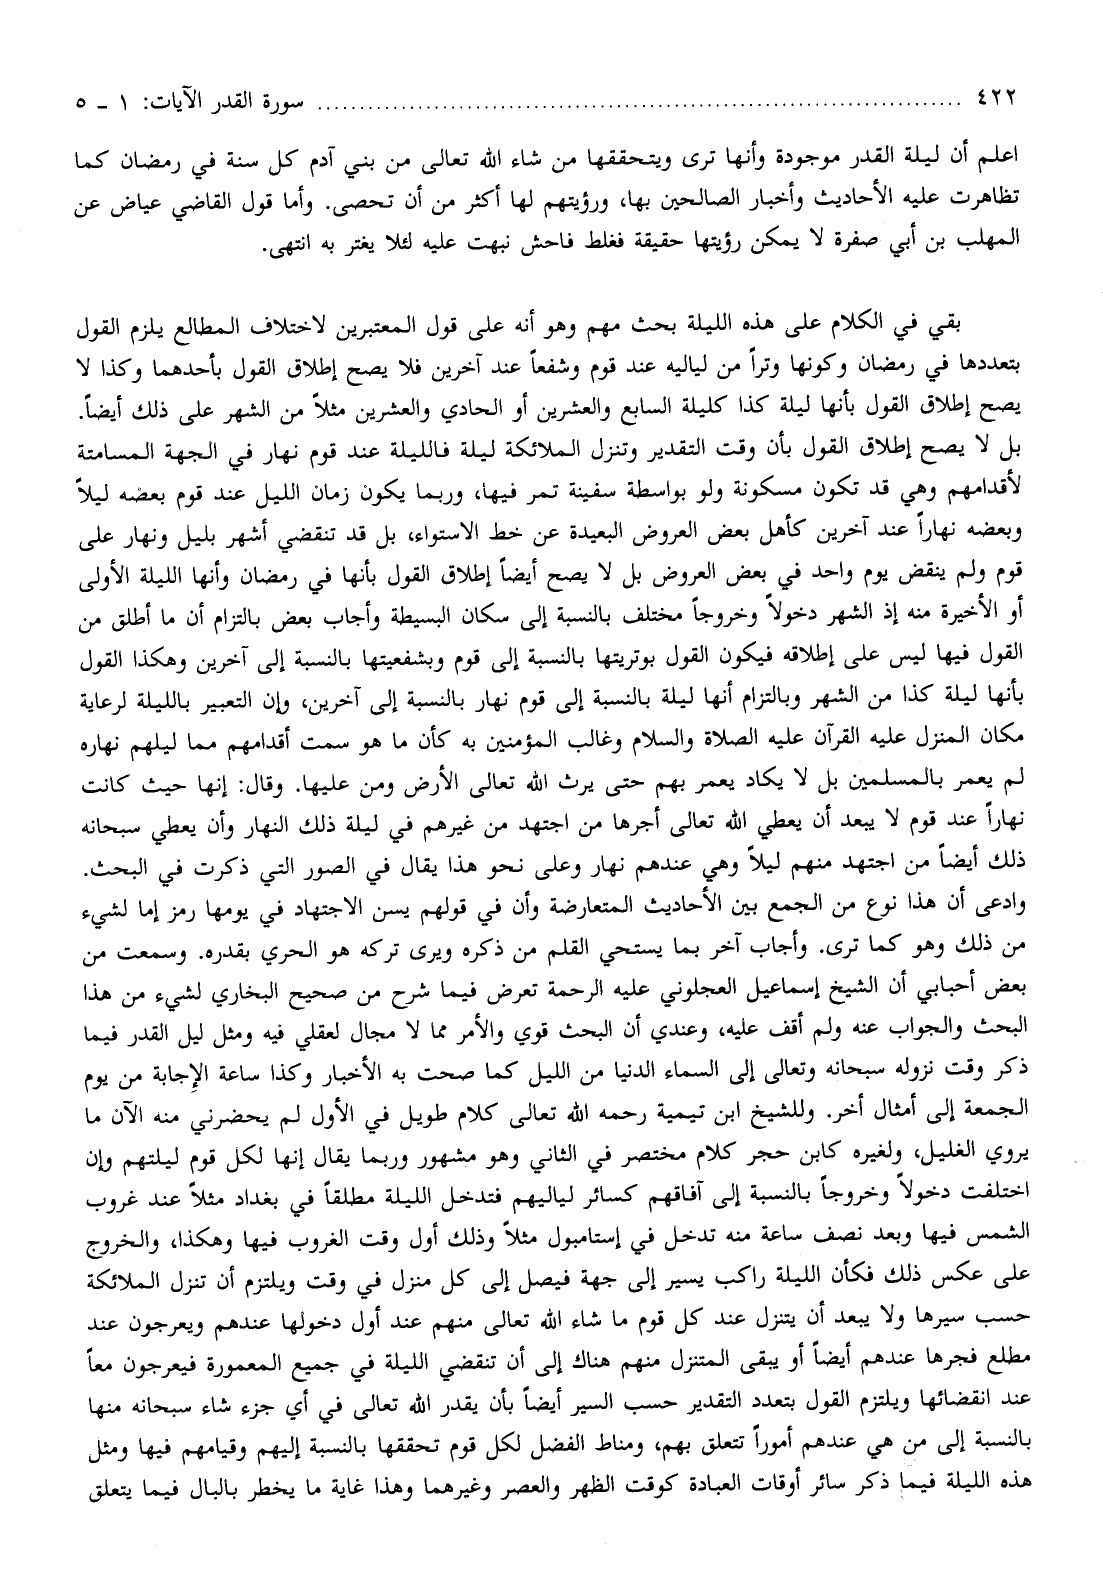 ٤٢٢ ........................................ سورة القدر الآيات: ١ ـ ٥
اعلم أن ليلة القدر موجودة وأنها ترى ويتحققها من شاء الله تعالى من بني آدم كل سنة في رمضان كما
تظاهرت عليه الأحاديث وأخبار الصالحين بها، ورؤيتهم لها أكثر من أن تحصى. وأما قول القاضي عياض عن
المهلب بن أبي صفرة لا يمكن رؤيتها حقيقة فغلط فاحش نبهت عليه لئلا يغتر به انتهى.
بقي في الكلام على هذه الليلة بحث مهم وهو أنه على قول المعتبرين لاختلاف المطالع يلزم القول
بتعددها في رمضان وكونها وتراً من لياليه عند قوم وشفعاً عند آخرين فلا يصح إطلاق القول بأحدهما وكذا لا
يصح إطلاق القول بأنها ليلة كذا كليلة السابع والعشرين أو الحادي والعشرين مثلاً من الشهر على ذلك أيضاً.
بل لا يصح إطلاق القول بأن وقت التقدير وتنزل الملائكة ليلة فالليلة عند قوم نهار في الجهة المسامتة
لأقدامهم وهي قد تكون مسكونة ولو بواسطة سفينة تمر فيها، وربما يكون زمان الليل عند قوم بعضه ليلاً
وبعضه نهاراً عند آخرين كأهل بعض العروض البعيدة عن خط الاستواء، بل قد تنقضي أشهر بليل ونهار على
قوم ولم ينقض يوم واحد في بعض العروض بل لا يصح أيضاً إطلاق القول بأنها في رمضان وأنها الليلة الأولى
أو الأخيرة منه إذ الشهر دخولاً وخروجاً مختلف بالنسبة إلى سكان البسيطة وأجاب بعض بالتزام أن ما أطلق من
القول فيها ليس على إطلاقه فيكون القول بوتريتها بالنسبة إلى قوم وبشفعيتها بالنسبة إلى آخرين وهكذا القول
بأنها ليلة كذا من الشهر وبالتزام أنها ليلة بالنسبة إلى قوم نهار بالنسبة إلى آخرين، وإن التعبير بالليلة لرعاية
مكان المنزل عليه القرآن عليه الصلاة والسلام وغالب المؤمنين به كأن ما هو سمت أقدامهم مما ليلهم نهاره
لم يعمر بالمسلمين بل لا يكاد يعمر بهم حتى يرث الله تعالى الأرض ومن عليها. وقال: إنها حيث كانت
نهاراً عند قوم لا يبعد أن يعطي الله تعالى أجرها من اجتهد من غيرهم في ليلة ذلك النهار وأن يعطي سبحانه
ذلك أيضاً من اجتهد منهم ليلاً وهي عندهم نهار وعلى نحو هذا يقال في الصور التي ذكرت في البحث.
وادعى أن هذا نوع من الجمع بين الأحاديث المتعارضة وأن في قولهم يسن الاجتهاد في يومها رمز إما لشيء
من ذلك وهو كما ترى. وأجاب آخر بما يستحي القلم من ذكره ويرى تركه هو الحري بقدره. وسمعت من
بعض أحبابي أن الشيخ إسماعيل العجلوني عليه الرحمة تعرض فيما شرح من صحيح البخاري لشيء من هذا
البحث والجواب عنه ولم أقف عليه، وعندي أن البحث قوي والأمر مما لا مجال لعقلي فيه ومثل ليل القدر فيما
ذكر وقت نزوله سبحانه وتعالى إلى السماء الدنيا من الليل كما صحت به الأخبار وكذا ساعة الإجابة من يوم
الجمعة إلى أمثال أخر. وللشيخ ابن تيمية رحمه الله تعالى كلام طويل في الأول لم يحضرني منه الآن ما
يروي الغليل، ولغيره كابن حجر كلام مختصر في الثاني وهو مشهور وربما يقال إنها لكل قوم ليلتهم وإن
اختلفت دخولاً وخروجاً بالنسبة إلى آفاقهم كسائر لياليهم فتدخل الليلة مطلقاً في بغداد مثلاً عند غروب
الشمس فيها وبعد نصف ساعة منه تدخل في إستامبول مثلاً وذلك أول وقت الغروب فيها وهكذا، والخروج
على عكس ذلك فكأن الليلة راكب يسير إلى جهة فيصل إلى كل منزل في وقت ويلتزم أن تنزل الملائكة
حسب سيرها ولا يبعد أن يتنزل عند كل قوم ما شاء الله تعالى منهم عند أول دخولها عندهم ويعرجون عند
مطلع فجرها عندهم أيضاً أو يبقى المتنزل منهم هناك إلى أن تنقضي الليلة في جميع المعمورة فيعرجون معاً
عند انقضائها ويلتزم القول بتعدد التقدير حسب السير أيضاً بأن يقدر الله تعالى في أي جزء شاء سبحانه منها
بالنسبة إلى من هي عندهم أموراً تتعلق بهم، ومناط الفضل لكل قوم تحققها بالنسبة إليهم وقيامهم فيها ومثل
هذه الليلة فيما ذكر سائر أوقات العبادة كوقت الظهر والعصر وغيرهما وهذا غاية ما يخطر بالبال فيما يتعلق